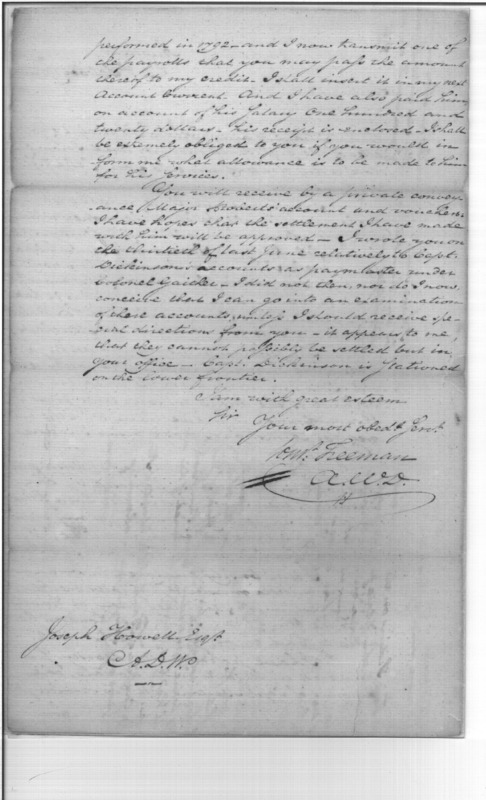 performed in 1792 - and I now transmit one of
the payrolls that you may pass the amount
thereof to my credit. I shall insert it in my next
Account Current. And I have also paid him
on account of his Salary One hundred and
twenty dollars - his receipt is enclosed - I shall
be extremely obliged to you if you would in
form me what allowance is to be made to him
for his services.
You will receive by a private convey
ance Major account and vouchers.
I have hopes that the settlement I have made
with him will be approved - I wrote you on
the thirtieth of last June relatively to Capt.
Dickinson's accounts as paymaster under
Colonel Gaither - I did not then, nor do I now
conceive that I can go into an examination
of these accounts, unless I should receive spe
cial directions from you - it appears to me
that they cannot possibly be settled but in
your office - Capt. Dickinson is stationed
on the lower frontier.
I am with great esteem
Sir
Your most obedt. Servt.
Freeman
A.W.D.
Joseph Howell Esqr.
A.D.W.